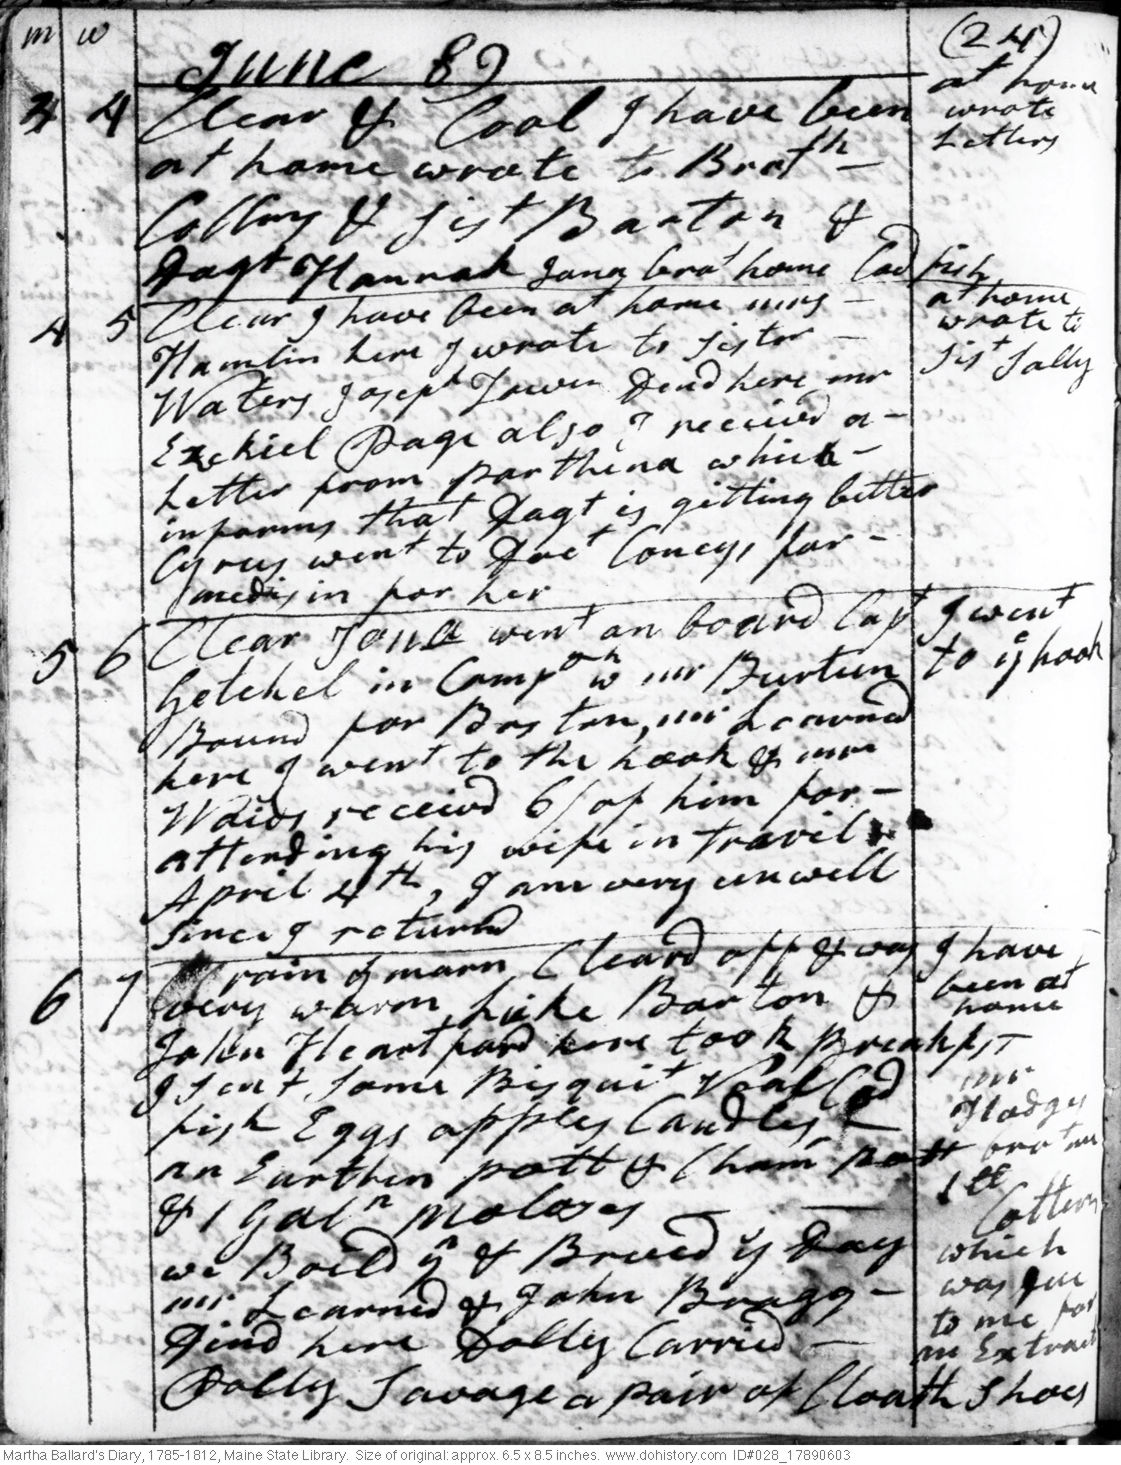 m w
June 89
(24)
3 4 Clear & Cool I have been
at home wrote to Broth
Collins & Sist Barton &
Dagt Hannah Jona brot home Cod fish
at home
wrote
Letters
4 5 Clear I have been at home mrs
Hamlin here I wrote to Sister
Waters Joseph Fowen Dind here mr
Ezekiel Page also I receivd a
Letter from Parthena which
informs that Dagt is gitting better
Cyrus went to Doct Coneys for
medisin for her
at home
wrote to
Sist Sally
5 6 Clear Jona went on board Capt
Getchel in Compy wh mr Burtun
Bound for Boston, mr Learned
here I went to the hook & mr
Waids receivd 6/ of him for
attending his wife in travil
April 4th, I am very unwell
Since I returnd
I went
to ye hook
6 7 rain ys morn, Cleard off & was
very warm, Luke Barton &
John Heartford here took Breakfst
I sent some Bisquit Veal Cod
fish Eggs apples Candles &
an Earthen pott & Cham Pott
& 1 Galn Molases
we Boild yn & Brewd ys Day
mr Learned & John Bragg
Dind here Dolly Carried
Polly Savage a pair of Cloath Shoes
I have
been at
home
mr
Hodges
brot me
1 lb
Cotten
which
was Due
to me for
an Extract
Martha Ballard's Diary, 1785-1812, Maine State Library. Size of original: approx. 6.5 x 8.5 inches. www.dohistory.com ID#028_17890603